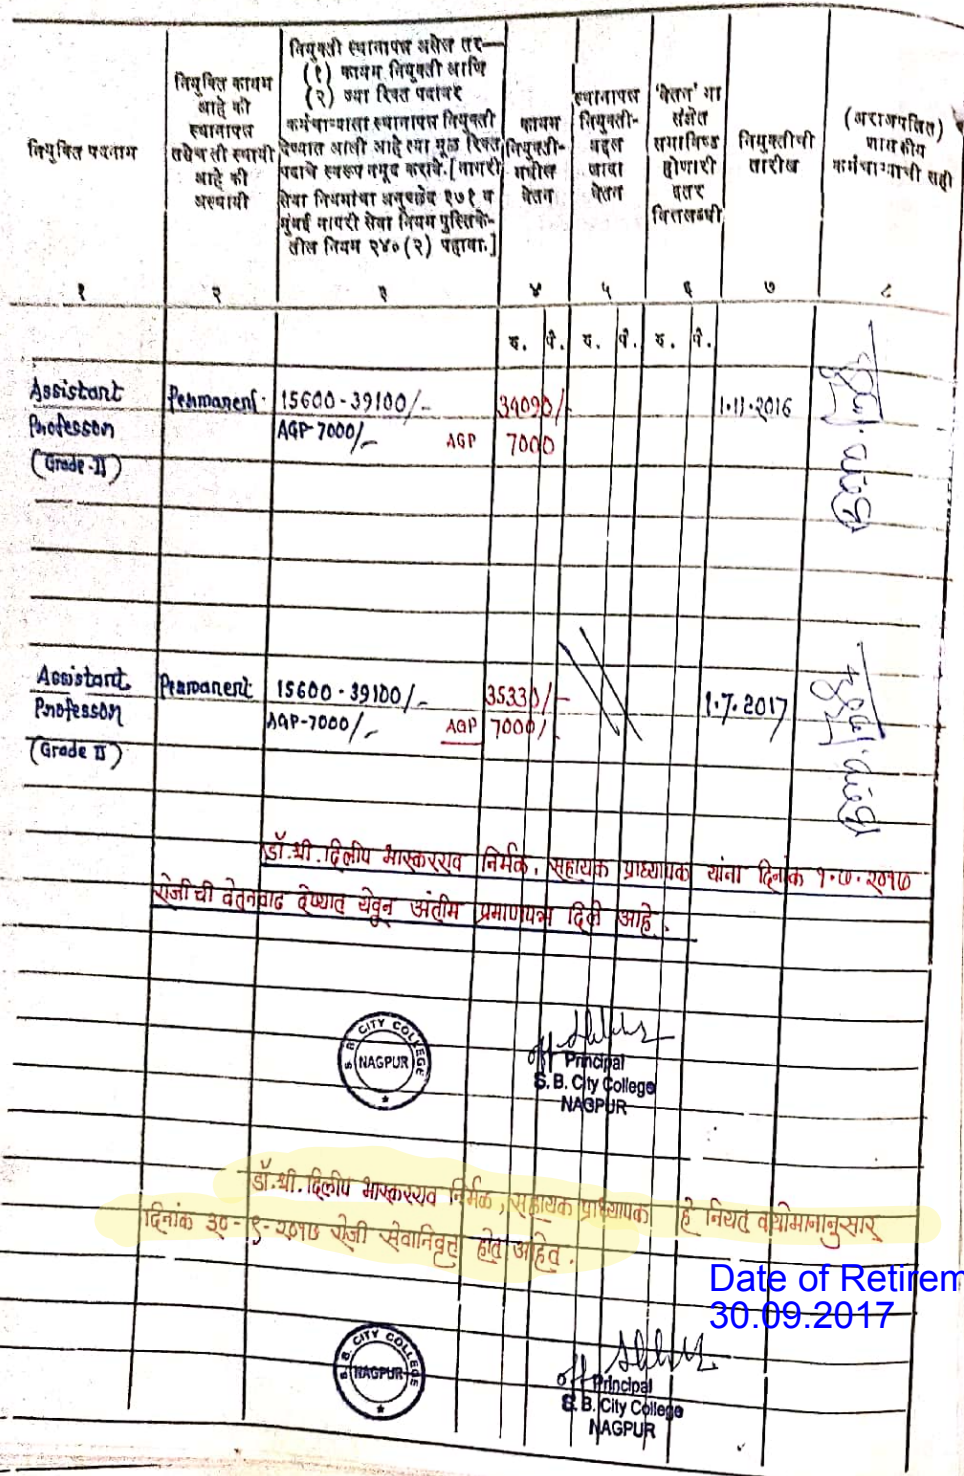 नियुक्ति पदनाम
नियुक्ति कायम
आहे की
स्थानापन्न
तसेच ती स्थायी
आहे की
अस्थायी
नियुक्ती स्थानापन्न असेल तर—
(१) कायम नियुक्ती आणि
(२) ज्या रिक्त पदावर
कर्मचाऱ्याला स्थानापन्न नियुक्ती
देण्यात आली आहे त्या मूळ रिक्त
पदाचे स्वरूप नमूद करावे. [नागरी
सेवा नियमांचा अनुच्छेद १७१ व
मुंबई नागरी सेवा नियम पुस्तिके-
तील नियम २४०(२) पहावा.]
कायम
नियुक्ती-
मधील
वेतन
स्थानापन्न
नियुक्ती-
बद्दल
जादा
वेतन
'वेतन' या
संज्ञेत
समाविष्ट
होणारी
इतर
वित्तलब्धी
नियुक्तीची
तारीख
(अराजपत्रित)
शासकीय
कर्मचाऱ्याची सही
१ २ ३ ४ ५ ६ ७ ८
रु. पै. रु. पै. रु. पै.
Assistant Permanent 15600-39100/- 34090/- 1.11.2016
Professor AGP-7000/- AGP 7000
(Grade-II)
Assistant Permanent 15600-39100/- 35330/- 1.7.2017
Professor AGP-7000/- AGP 7000/-
(Grade II)
डॉ.श्री.दिलीप भास्करराव निर्मळ, सहायक प्राध्यापक यांना दिनांक १.७.२०१७
रोजी ची वेतनवाढ देण्यात येवून अंतीम प्रमाणपत्र दिले आहे.
S. B. CITY COLLEGE
NAGPUR
Principal
S. B. City College
NAGPUR
डॉ.श्री.दिलीप भास्करराव निर्मळ, सहायक प्राध्यापक हे नियत वयोमानानुसार
दिनांक ३०-९-२०१७ रोजी सेवानिवृत्त होत आहेत.
Date of Retirem
30.09.2017
S. B. CITY COLLEGE
NAGPUR
Principal
S. B. City College
NAGPUR